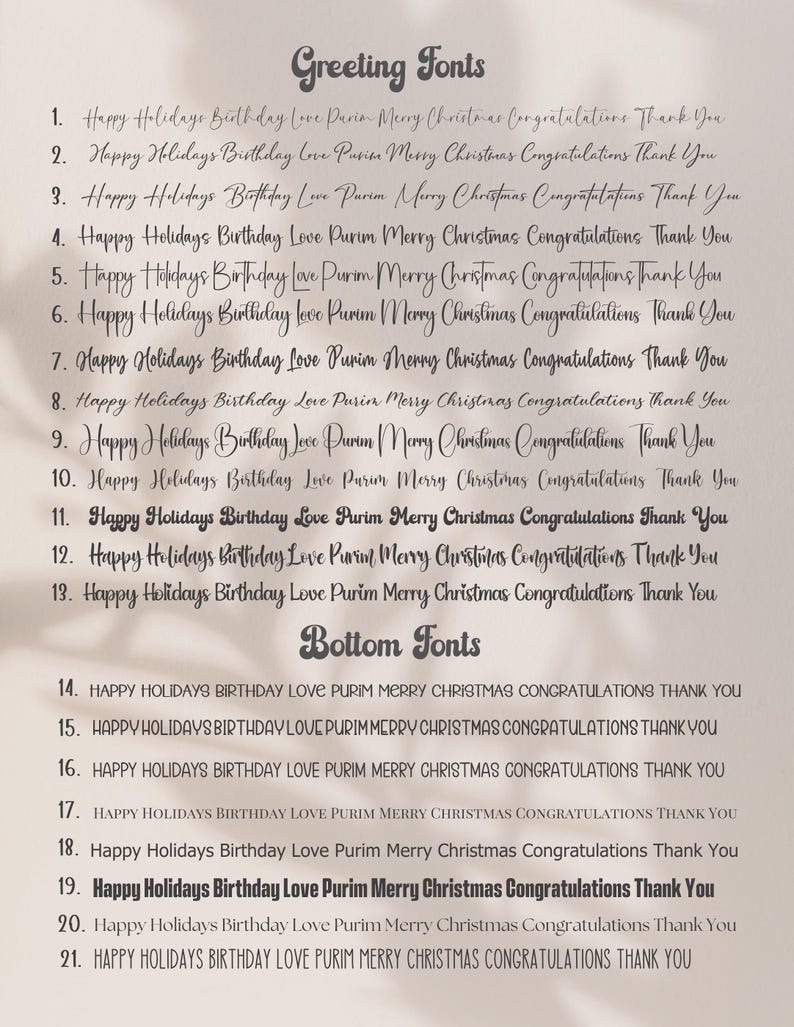 Greeting Fonts
1. Happy Holidays Birthday Love Purim Merry Christmas Congratulations Thank You
2. Happy Holidays Birthday Love Purim Merry Christmas Congratulations Thank You
3. Happy Holidays Birthday Love Purim Merry Christmas Congratulations Thank You
4. Happy Holidays Birthday Love Purim Merry Christmas Congratulations Thank You
5. Happy Holidays Birthday Love Purim Merry Christmas Congratulations Thank You
6. Happy Holidays Birthday Love Purim Merry Christmas Congratulations Thank You
7. Happy Holidays Birthday Love Purim Merry Christmas Congratulations Thank You
8. Happy Holidays Birthday Love Purim Merry Christmas Congratulations Thank You
9. Happy Holidays Birthday Love Purim Merry Christmas Congratulations Thank You
10. Happy Holidays Birthday Love Purim Merry Christmas Congratulations Thank You
11. Happy Holidays Birthday Love Purim Merry Christmas Congratulations Thank You
12. Happy Holidays Birthday Love Purim Merry Christmas Congratulations Thank You
13. Happy Holidays Birthday Love Purim Merry Christmas Congratulations Thank You
Bottom Fonts
14. HAPPY HOLIDAYS BIRTHDAY LOVE PURIM MERRY CHRISTMAS CONGRATULATIONS THANK YOU
15. HAPPY HOLIDAYS BIRTHDAY LOVE PURIM MERRY CHRISTMAS CONGRATULATIONS THANK YOU
16. HAPPY HOLIDAYS BIRTHDAY LOVE PURIM MERRY CHRISTMAS CONGRATULATIONS THANK YOU
17. Happy Holidays Birthday Love Purim Merry Christmas Congratulations Thank You
18. Happy Holidays Birthday Love Purim Merry Christmas Congratulations Thank You
19. Happy Holidays Birthday Love Purim Merry Christmas Congratulations Thank You
20. Happy Holidays Birthday Love Purim Merry Christmas Congratulations Thank You
21. HAPPY HOLIDAYS BIRTHDAY LOVE PURIM MERRY CHRISTMAS CONGRATULATIONS THANK YOU